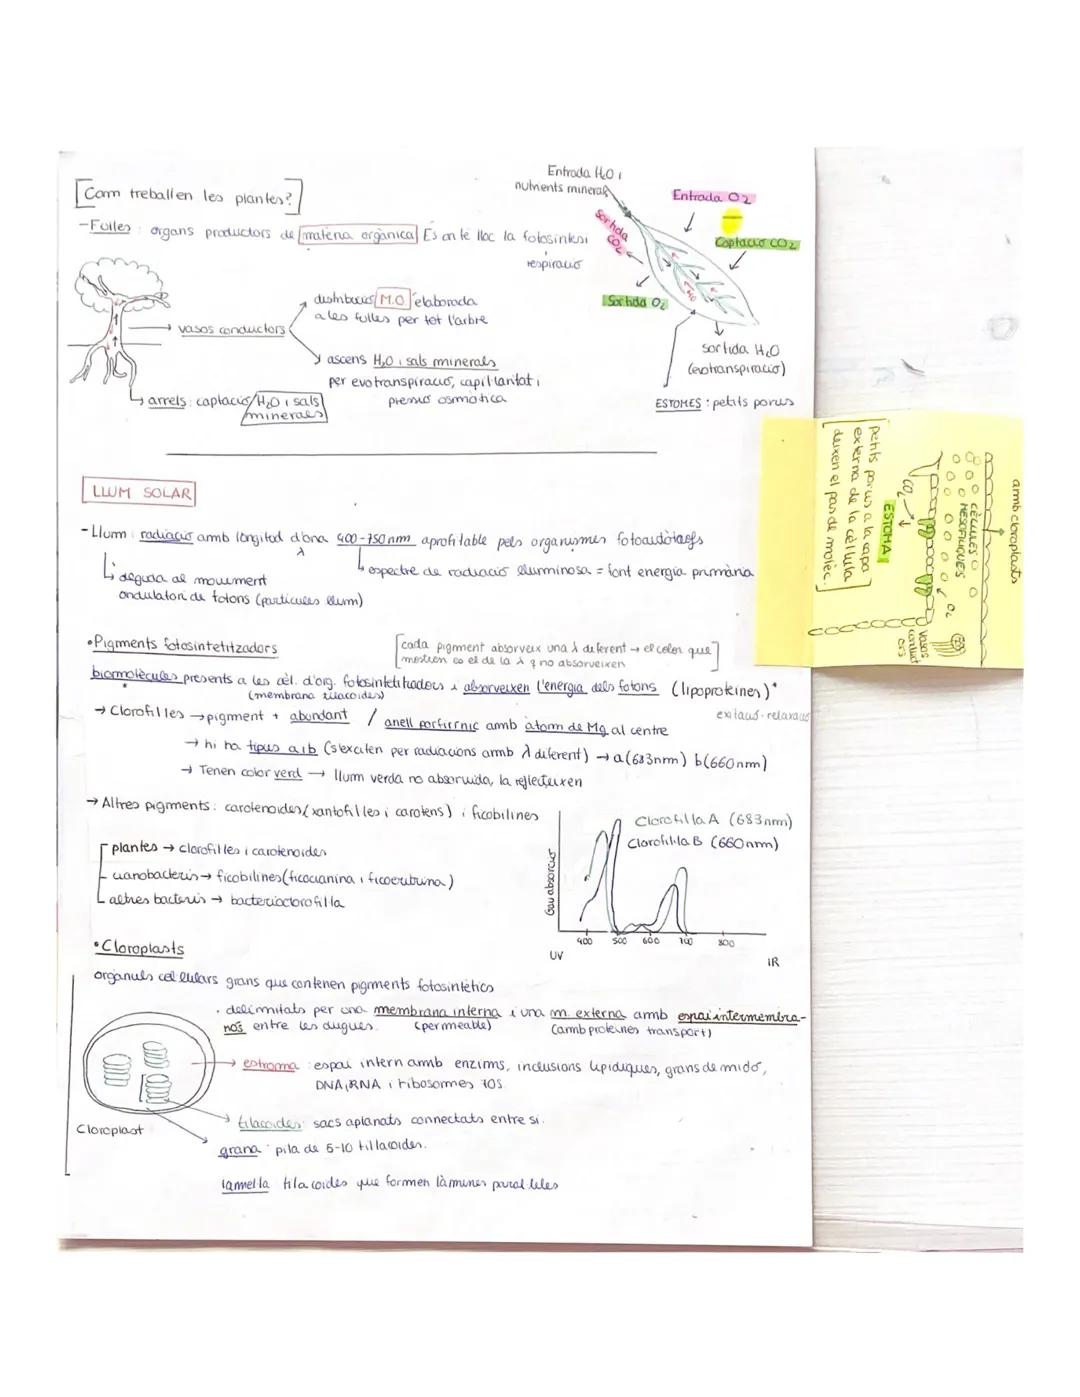 [Com treballen les plantes?]
-Fulles: òrgans productors de matèria orgànica Es on té lloc la fotosíntesi
respiració
Entrada H₂O i
nutrients minerals
Entrada O2
Sortida CO2
Captació CO2
Sortida O2
H₂O
sortida H₂O
(evotranspiració)
ESTOMES: petits porus
vasos conductors
distribució M.O. elaborada
a les fulles per tot l'arbre
ascens H₂O i sals minerals
per evotranspiració, capil·laritat i
pressió osmòtica
arrels: captació H₂O i sals
minerals
amb cloroplasts
CÈL·LULES
MESOFÍL·IQUES
CO2
O2
vasos
conduct
ors
ESTOMA
[petits porus a la capa
externa de la cèl·lula
deixen el pas de molèc.]
LLUM SOLAR
-Llum: radiació amb longitud d'ona 400-750nm aprofitable pels organismes fotoautòtrofs
λ
espectre de radiació lluminosa = font energia primària
deguda al moviment
ondulatori de fotons (partícules llum)
•Pigments fotosintetitzadors
[cada pigment absorveix una λ diferent → el color que
mostren es el de la λ q no absorveixen]
biomolècules presents a les cèl. d'org. fotosintetitzadors i absorveixen l'energia dels fotons (lipoproteïnes)*
(membrana tilacoides)
exitació-relaxació
→ Clorofil·les → pigment + abundant / anell porfirínic amb àtom de Mg al centre
→ hi ha tipus a i b (s'exciten per radiacions amb λ diferent) → a(683nm) b(660nm)
→ Tenen color verd → llum verda no absorvida, la reflecteixen
→ Altres pigments: carotenoides (xantofil·les i carotens) i ficobilines
plantes → clorofil·les i carotenoides
cianobacteris → ficobilines (ficocianina i ficoeritrina)
altres bacteris → bacterioclorofil·la
Clorofil·la A (683nm)
Clorofil·la B (660nm)
Grau absorció
400 500 600 700 800
UV
IR
•Cloroplasts
orgànuls cel·lulars grans que contenen pigments fotosintètics
. delimitats per una membrana interna i una m. externa amb espai intermembra-
nós entre les dugues. (permeable) (amb proteïnes transport)
→ estroma: espai intern amb enzims, inclusions lipídiques, grans de midó,
DNA, RNA i ribosomes 70S.
→ tilacoides: sacs aplanats connectats entre si.
Cloroplast
grana: pila de 5-10 til·lacoides.
lamel·la tilacoides que formen làmines paral·leles